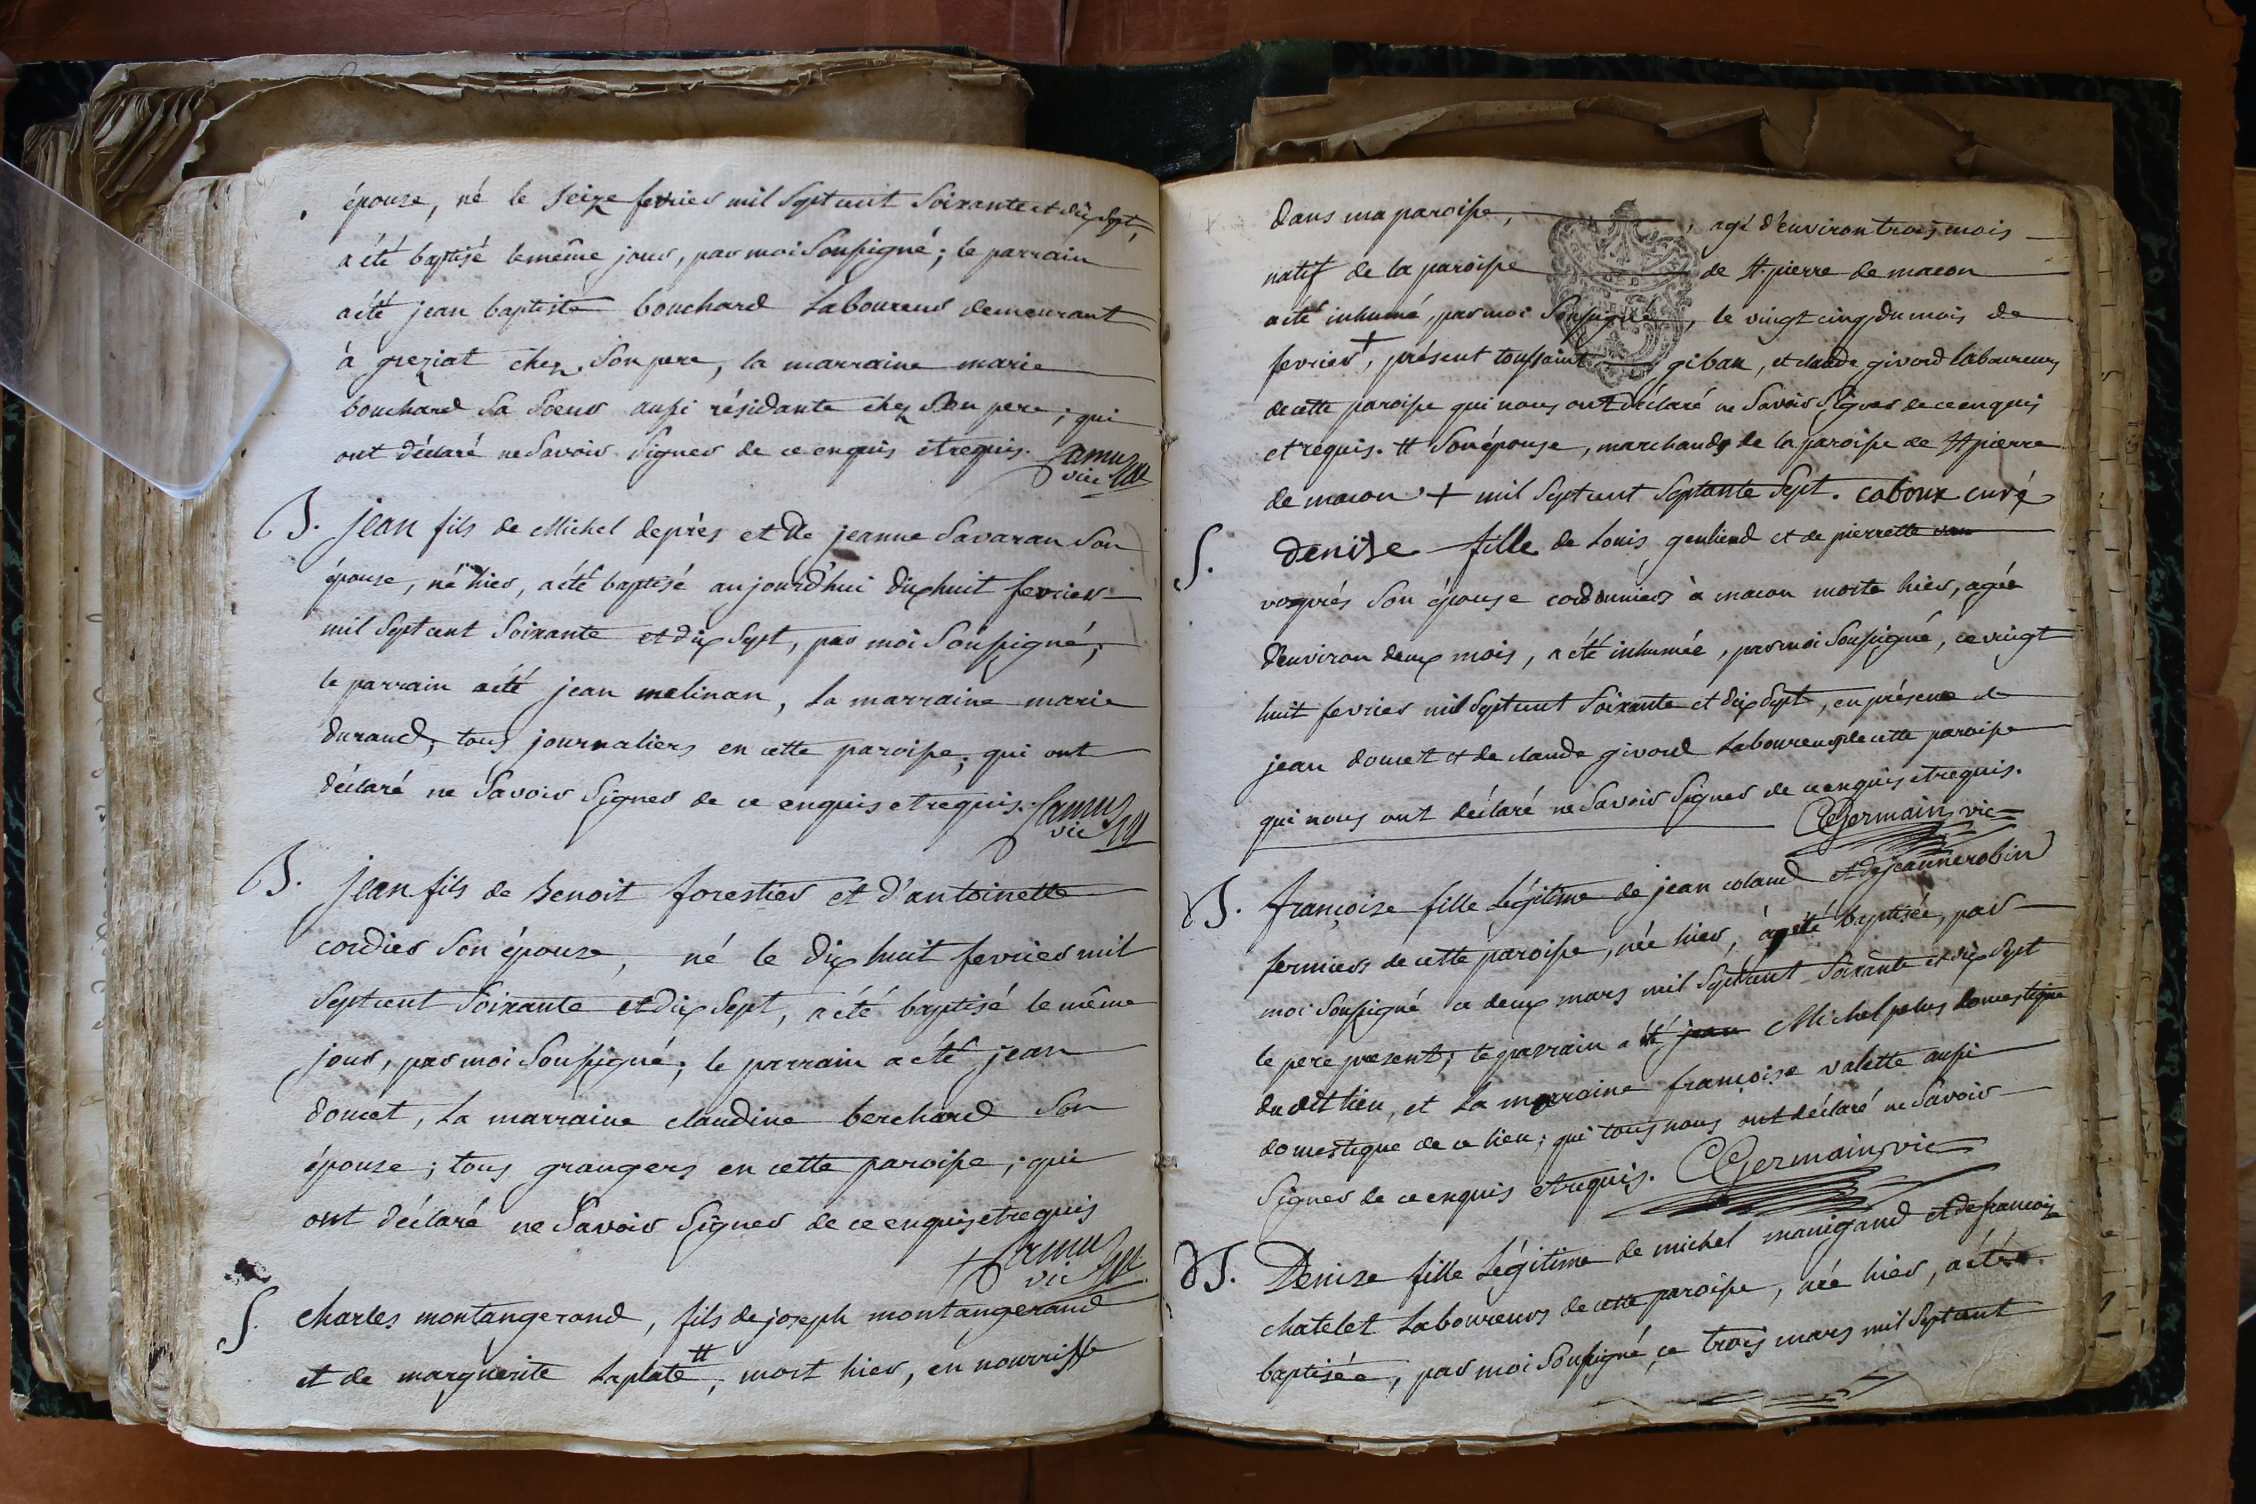 épouse, né le seize fevrier mil sept cent soixante et dix sept,
a été baptisé le même jour, par moi soussigné ; le parrain
a été jean baptiste bouchard Laboureur demeurant
à greziat chez son pere, la marraine marie
bouchard sa soeur aussi résidante chez son pere ; qui
ont déclaré ne savoir signer de ce enquis et requis. Camus
vic
B. jean fils de Michel deprès et de jeanne Savaran son
épouse, né hier, a été baptisé aujourd'hui dix huit fevrier
mil sept cent soixante et dix sept, par moi soussigné,
le parrain a été jean melinan, La marraine marie
durand, tous journaliers en cette paroisse, qui ont
déclaré ne savoir signer de ce enquis et requis. Camus
vic
B. jean fils de Benoit forestier et d'antoinette
cordier son épouse, né le dix huit fevrier mil
sept cent soixante et dix sept, a été baptisé le même
jour, par moi soussigné, le parrain a été jean
doucet, La marraine claudine berchard son
épouse ; tous grangers en cette paroisse, qui
ont déclaré ne savoir signer de ce enquis et requis
Camus
vic
S. charles montangerand, fils de joseph montangerand
et de marguerite Laplate ++, mort hier, en nourrisse
dans ma paroisse, agé d'environ trois mois
natif de la paroisse de st. pierre de macon
a été inhumé, par moi soussigné, le vingt cinq du mois de
fevrier +, présent toussaint giban, et claude givord laboureurs
de cette paroisse qui nous ont déclaré ne savoir signer de ce enquis
et requis. ++ son épouse, marchands de la paroisse de st pierre
de macon + mil sept cent septante sept. caboux curé
S. denise fille de Louis genliend et de pierrette
son épouse cordonnier à macon morte hier, agée
d'environ deux mois, a été inhumée, par moi soussigné, ce vingt
huit fevrier mil sept cent soixante et dix sept, en présence de
jean doucet et de claude givord Laboureurs de cette paroisse
qui nous ont déclaré ne savoir signer de ce enquis et requis.
Germain vic
B. françoise fille Légitime de jean coland et de jeanne robin
fermiers de cette paroisse, née hier, a été baptisée, par
moi soussigné ce deux mars mil sept cent soixante et dix sept
le pere present, le parrain a été jean Michel pelus domestique
du dit lieu, et La marraine françoise valette aussi
domestique de ce lieu ; qui tous nous ont déclaré ne savoir
signer de ce enquis et requis. Germain vic
B. Denise fille Légitime de michel manigand et de francoise
chatelet Laboureurs de cette paroisse, née hier, a été
baptisée, par moi soussigné ce trois mars mil sept cent